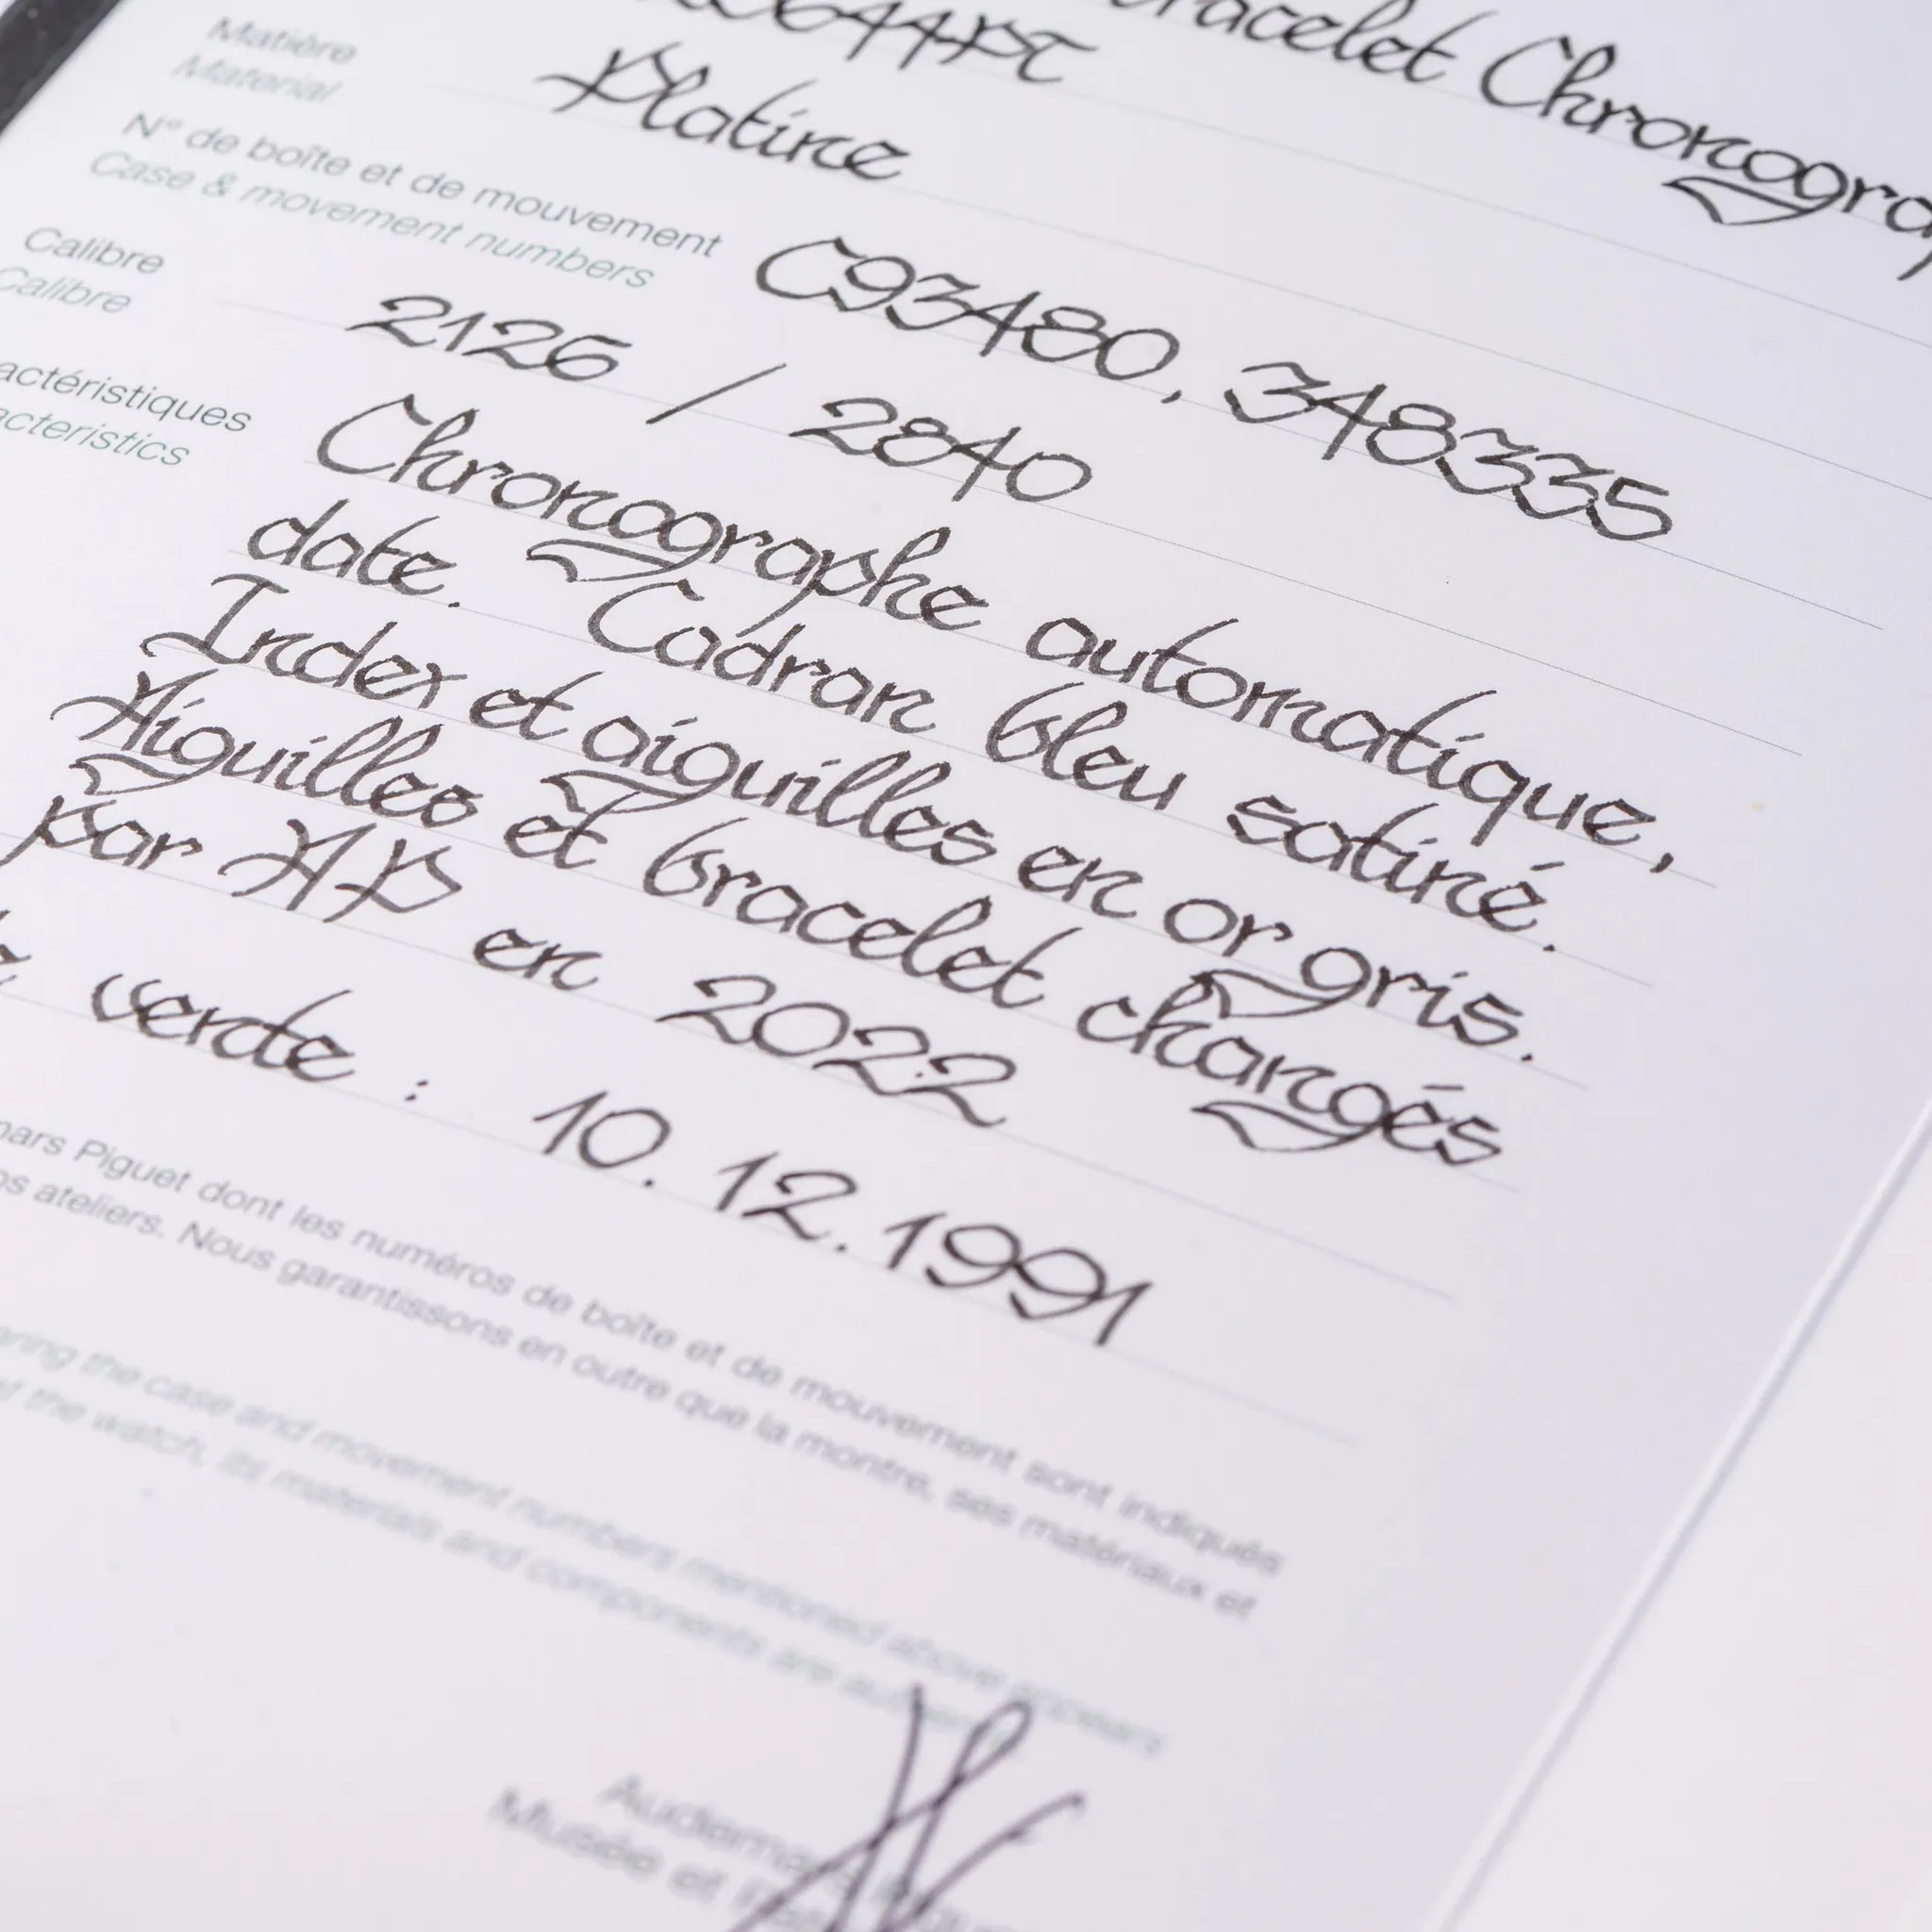 bracelet Chronogra
Matière
Material
Platine
N° de boîte et de mouvement
Case & movement numbers
C93480, 348335
Calibre
Calibre
2126 / 2840
actéristiques
acteristics
Chronographe automatique,
date. Cadran bleu satiné.
Index et aiguilles en or gris.
Aiguilles et bracelet changés
par AP en 2022
vente : 10.12.1991
mars Piguet dont les numéros de boîte et de mouvement sont indiqués
os ateliers. Nous garantissons en outre que la montre, ses matériaux et
aring the case and movement numbers mentioned above appears
the watch, its materials and components are
Audemars
Musée et